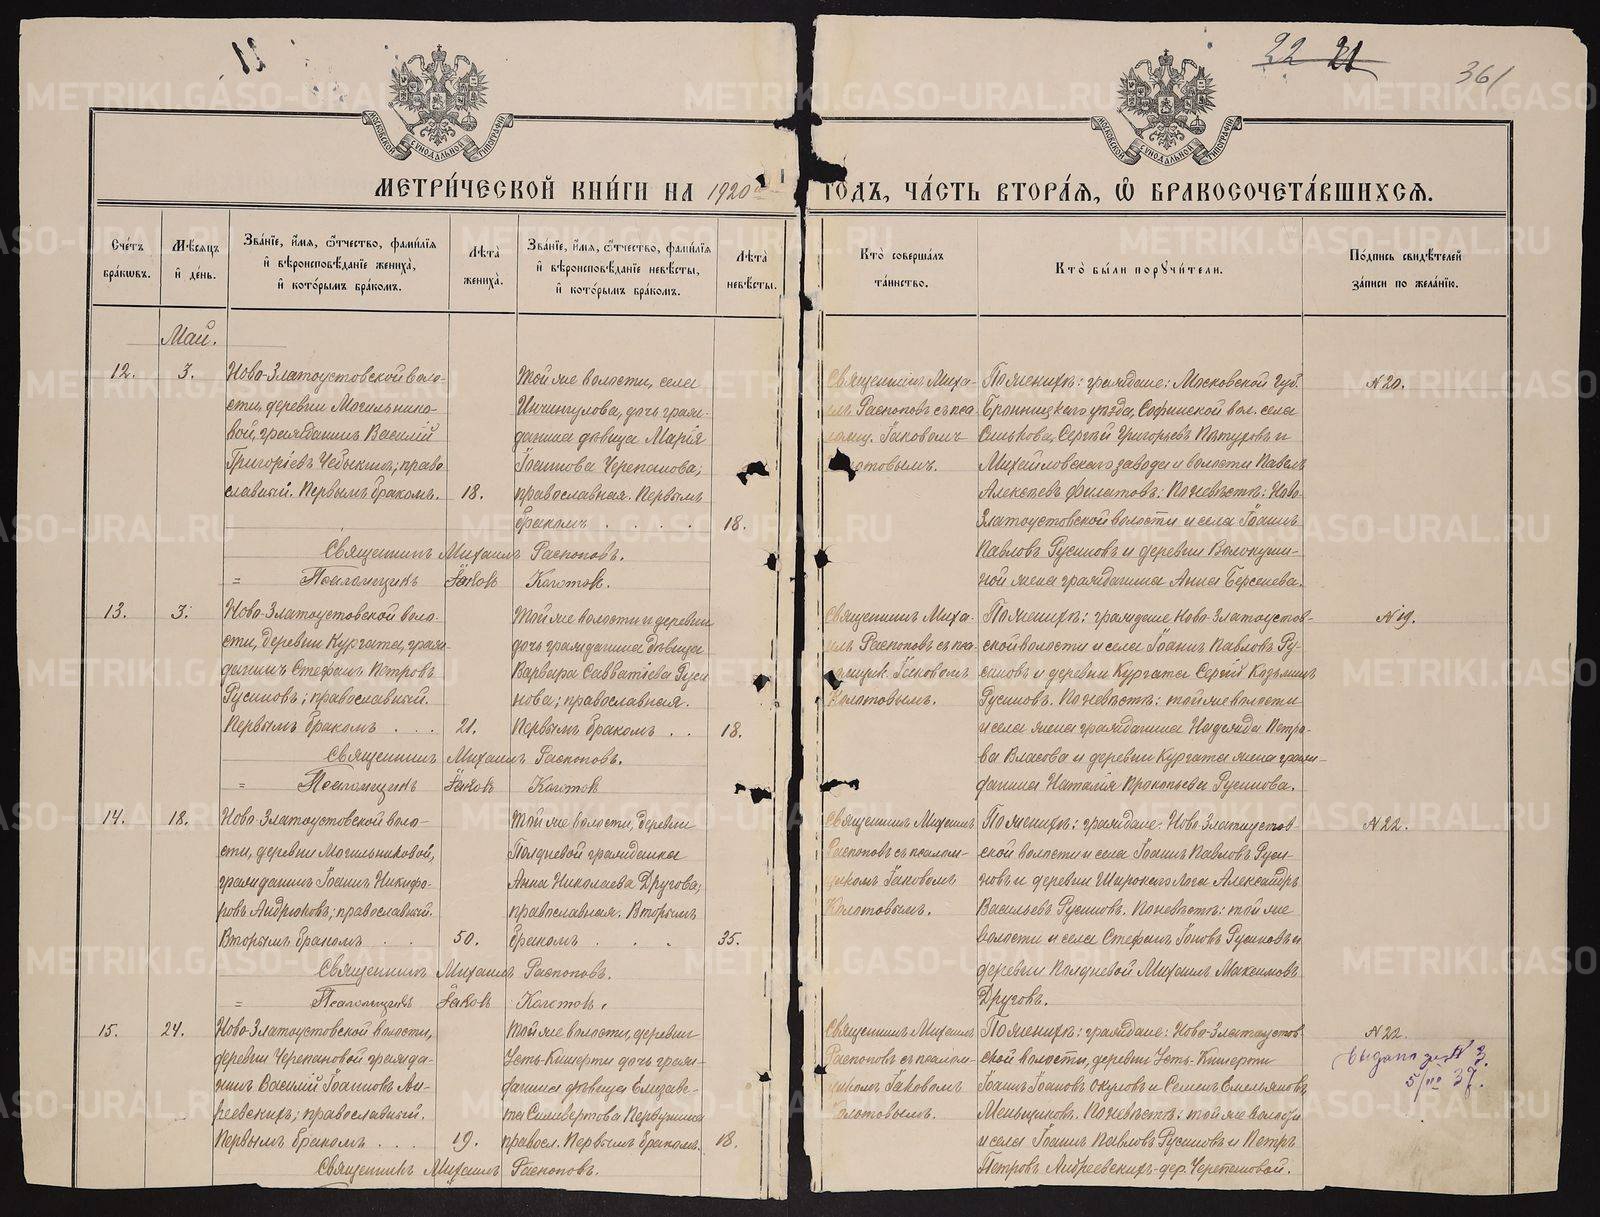 22 21
361
МОСКОВСКОЙ СѴНОДАЛЬНОЙ ТИПОГРАФІИ
МОСКОВСКОЙ СѴНОДАЛЬНОЙ ТИПОГРАФІИ
МЕТРИ́ЧЕСКОЙ КНИ́ГИ НА 1920 ГОДЪ, ЧА́СТЬ ВТОРА́Я, Ѽ БРАКОСОЧЕТА́ВШИХСѦ.
Счéтъ бра́кѡвъ.
Мѣ́сяцъ и҆ дéнь.
Зва́нїе, и҆́мя, ѻ҆́тчество, фами́лїя
и҆ вѣроисповѣ́данїе жениха̀,
и҆ кото́рымъ бра́комъ.
Лѣ́та жениха̀.
Зва́нїе, и҆́мя, ѻ҆́тчество, фами́лїя
и҆ вѣроисповѣ́данїе невѣ́сты,
и҆ кото́рымъ бра́комъ.
Лѣ́та невѣ́сты.
Кто̀ соверша́лъ та́инство.
Кто̀ бы́ли порꙋчи́тели.
По́дпись свидѣ́телей за́писи по жела́нїю.
Май.
12. 3.
Ново-Златоустовской воло-
сти, деревни Могильнико-
вой, гражданинъ Василій
Григоріевъ Чебыкинъ; право-
славный. Первымъ бракомъ. 18.
Той же волости, села
дочь граж-
данина дѣвица Марія
Іоаннова Черепанова;
православная. Первымъ
бракомъ . . . . 18.
Священникъ Михаилъ Распоповъ.
" Псаломщикъ Іаковъ Колотов.
Священникъ Миха-
илъ Распоповъ съ пса-
ломщ. Іаковомъ
Колотовымъ.
По женихѣ: граждане: Московской губ.
Бронницкаго уѣзда, Софьинской вол. села
Сергѣй Григорьевъ и
Михайловскаго завода и волости Павелъ
Алексѣевъ Филатовъ. По невѣстѣ: Ново-
Златоустовской волости и села Іоаннъ
Павловъ Русиновъ и деревни Волокуши-
ной жена гражданина Анна Берсенева.
N 20.
13. 3.
Ново-Златоустовской воло-
сти, деревни Кургата, граж-
данинъ Стефанъ Петровъ
Русиновъ; православный.
Первымъ бракомъ . . . 21.
Той же волости и деревни
дочь гражданина дѣвица
Варвара Савватіева Руси-
нова; православная.
Первымъ бракомъ . . 18.
Священникъ Михаилъ Распоповъ.
" Псаломщикъ Іаковъ Колотов
Священникъ Миха-
илъ Распоповъ съ пса-
ломщик. Іаковомъ
Колотовымъ.
По женихѣ: граждане Ново-Златоустов-
ской волости и села Іоаннъ Павловъ Ру-
синовъ и деревни Кургата Сергѣй Козьминъ
Русиновъ. По невѣстѣ: той же волости
и села жена гражданина Надежда Петро-
ва Власова и деревни Кургата жена граж-
данина Наталія Прокопьева Русинова.
N 19.
14. 18.
Ново-Златоустовской воло-
сти, деревни Могильниковой,
гражданинъ Іоаннъ Никифо-
ровъ Андрюковъ; православный.
Вторымъ бракомъ . . 50.
Той же волости, деревни
Полдневой гражданка
Анна Николаева Другова;
православная. Вторымъ
бракомъ . . . 35.
Священникъ Михаилъ Распоповъ.
" Псаломщикъ Іаковъ Колотов.
Священникъ Михаилъ
Распоповъ съ псалом-
щикомъ Іаковомъ
Колотовымъ.
По женихѣ: граждане: Ново-Златоустов-
ской волости и села Іоаннъ Павловъ Руси-
новъ и деревни Широкаго Лога Александръ
Васильевъ Русиновъ. По невѣстѣ: той же
волости и села Стефанъ Іоновъ Русиновъ и
деревни Полдневой Михаилъ Максимовъ
Друговъ.
N 22.
15. 24.
Ново-Златоустовской волости,
деревни Черепановой гражда-
нинъ Василій Іоанновъ Ан-
реевскихъ; православный.
Первымъ бракомъ . . . 19.
Той же волости, деревни
Усть-Кишерти дочь граж-
данина дѣвица Елизаве-
та Силивертова Первушина
правосл. Первымъ бракомъ. 18.
Священникъ Михаилъ Распоповъ.
Священникъ Михаилъ
Распоповъ съ псалом-
щикомъ Іаковомъ
Колотовымъ.
По женихѣ: граждане: Ново-Златоустов-
ской волости, деревни Усть-Кишерти
Іоаннъ Іоановъ Окуловъ и Семенъ Емельяновъ
Меньщиковъ. По невѣстѣ: той же волости
и села Іоаннъ Павловъ Русиновъ и Петръ
Петровъ Андреевскихъ дер. Черепановой.
N 22.
выдана N 3.
5/III 37.
METRIKI.GASO-URAL.RU